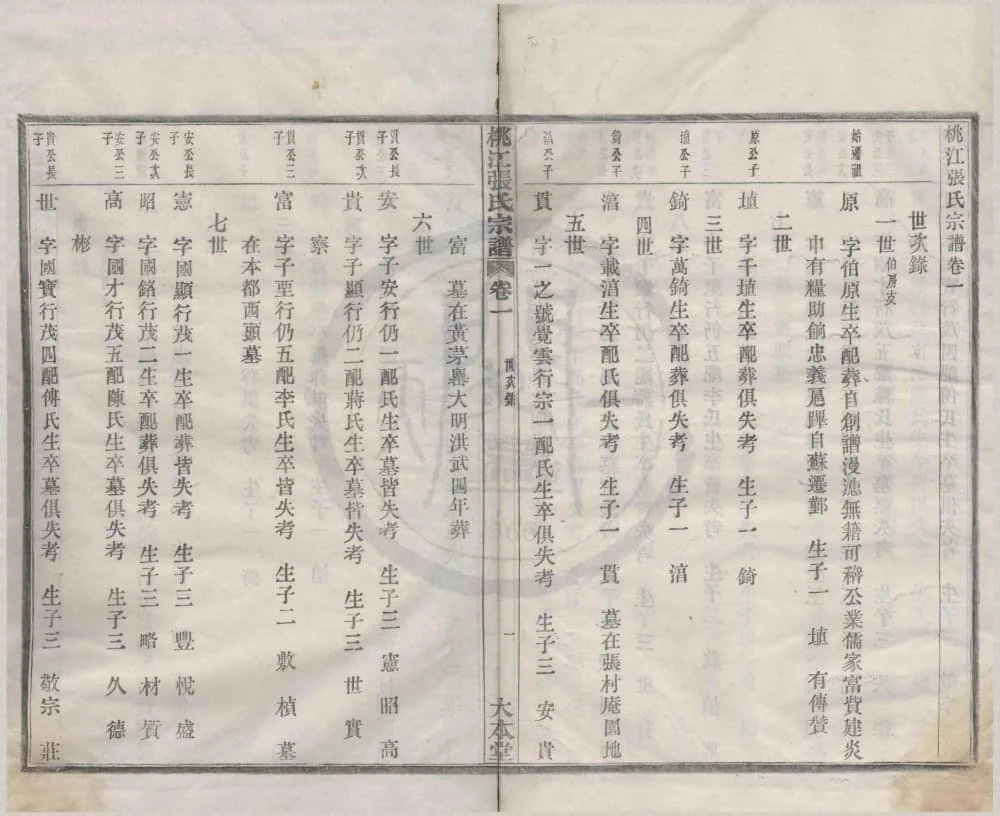 桃江張氏宗譜卷一
世次錄
一世伯房支
始遷祖
原 字伯原生卒配葬自創譜漫漶無籍可稽公業儒家富貲建炎
中有糧助餉忠義扈蹕自蘇遷鄞 生子一 埴 有傳贊
二世
原公子
埴 字千埴生卒配葬俱失考 生子一 錡
三世
埴公子
錡 字萬錡生卒配葬俱失考 生子一 涫
四世
錡公子
涫 字載涫生卒配氏俱失考 生子一 貫 墓在張村庵園地
五世
涫公子
貫 字一之號覺雲行宗一配氏生卒俱失考 生子三 安 貴
桃江張氏宗譜 卷一 世次錄 一 大本堂
富 墓在黃茅嶴大明洪武四年葬
六世
貫公長子
安 字子安行仍一配氏生卒墓皆失考 生子三 憲 昭 高
貫公次子
貴 字子顯行仍二配蔣氏生卒墓皆失考 生子三 世 實
察
貫公三子
富 字子垔行仍五配李氏生卒皆失考 生子二 敷 楨 墓
在本都西頭墓
七世
安公長子
憲 字國顯行茂一生卒配葬皆失考 生子三 豐 悅 盛
安公次子
昭 字國銘行茂二生卒配葬俱失考 生子三 略 材 質
安公三子
高 字國才行茂五配陳氏生卒墓俱失考 生子三 久 德
彬
貴公長子
世 字國寶行茂四配傅氏生卒墓俱失考 生子三 敬宗 莊